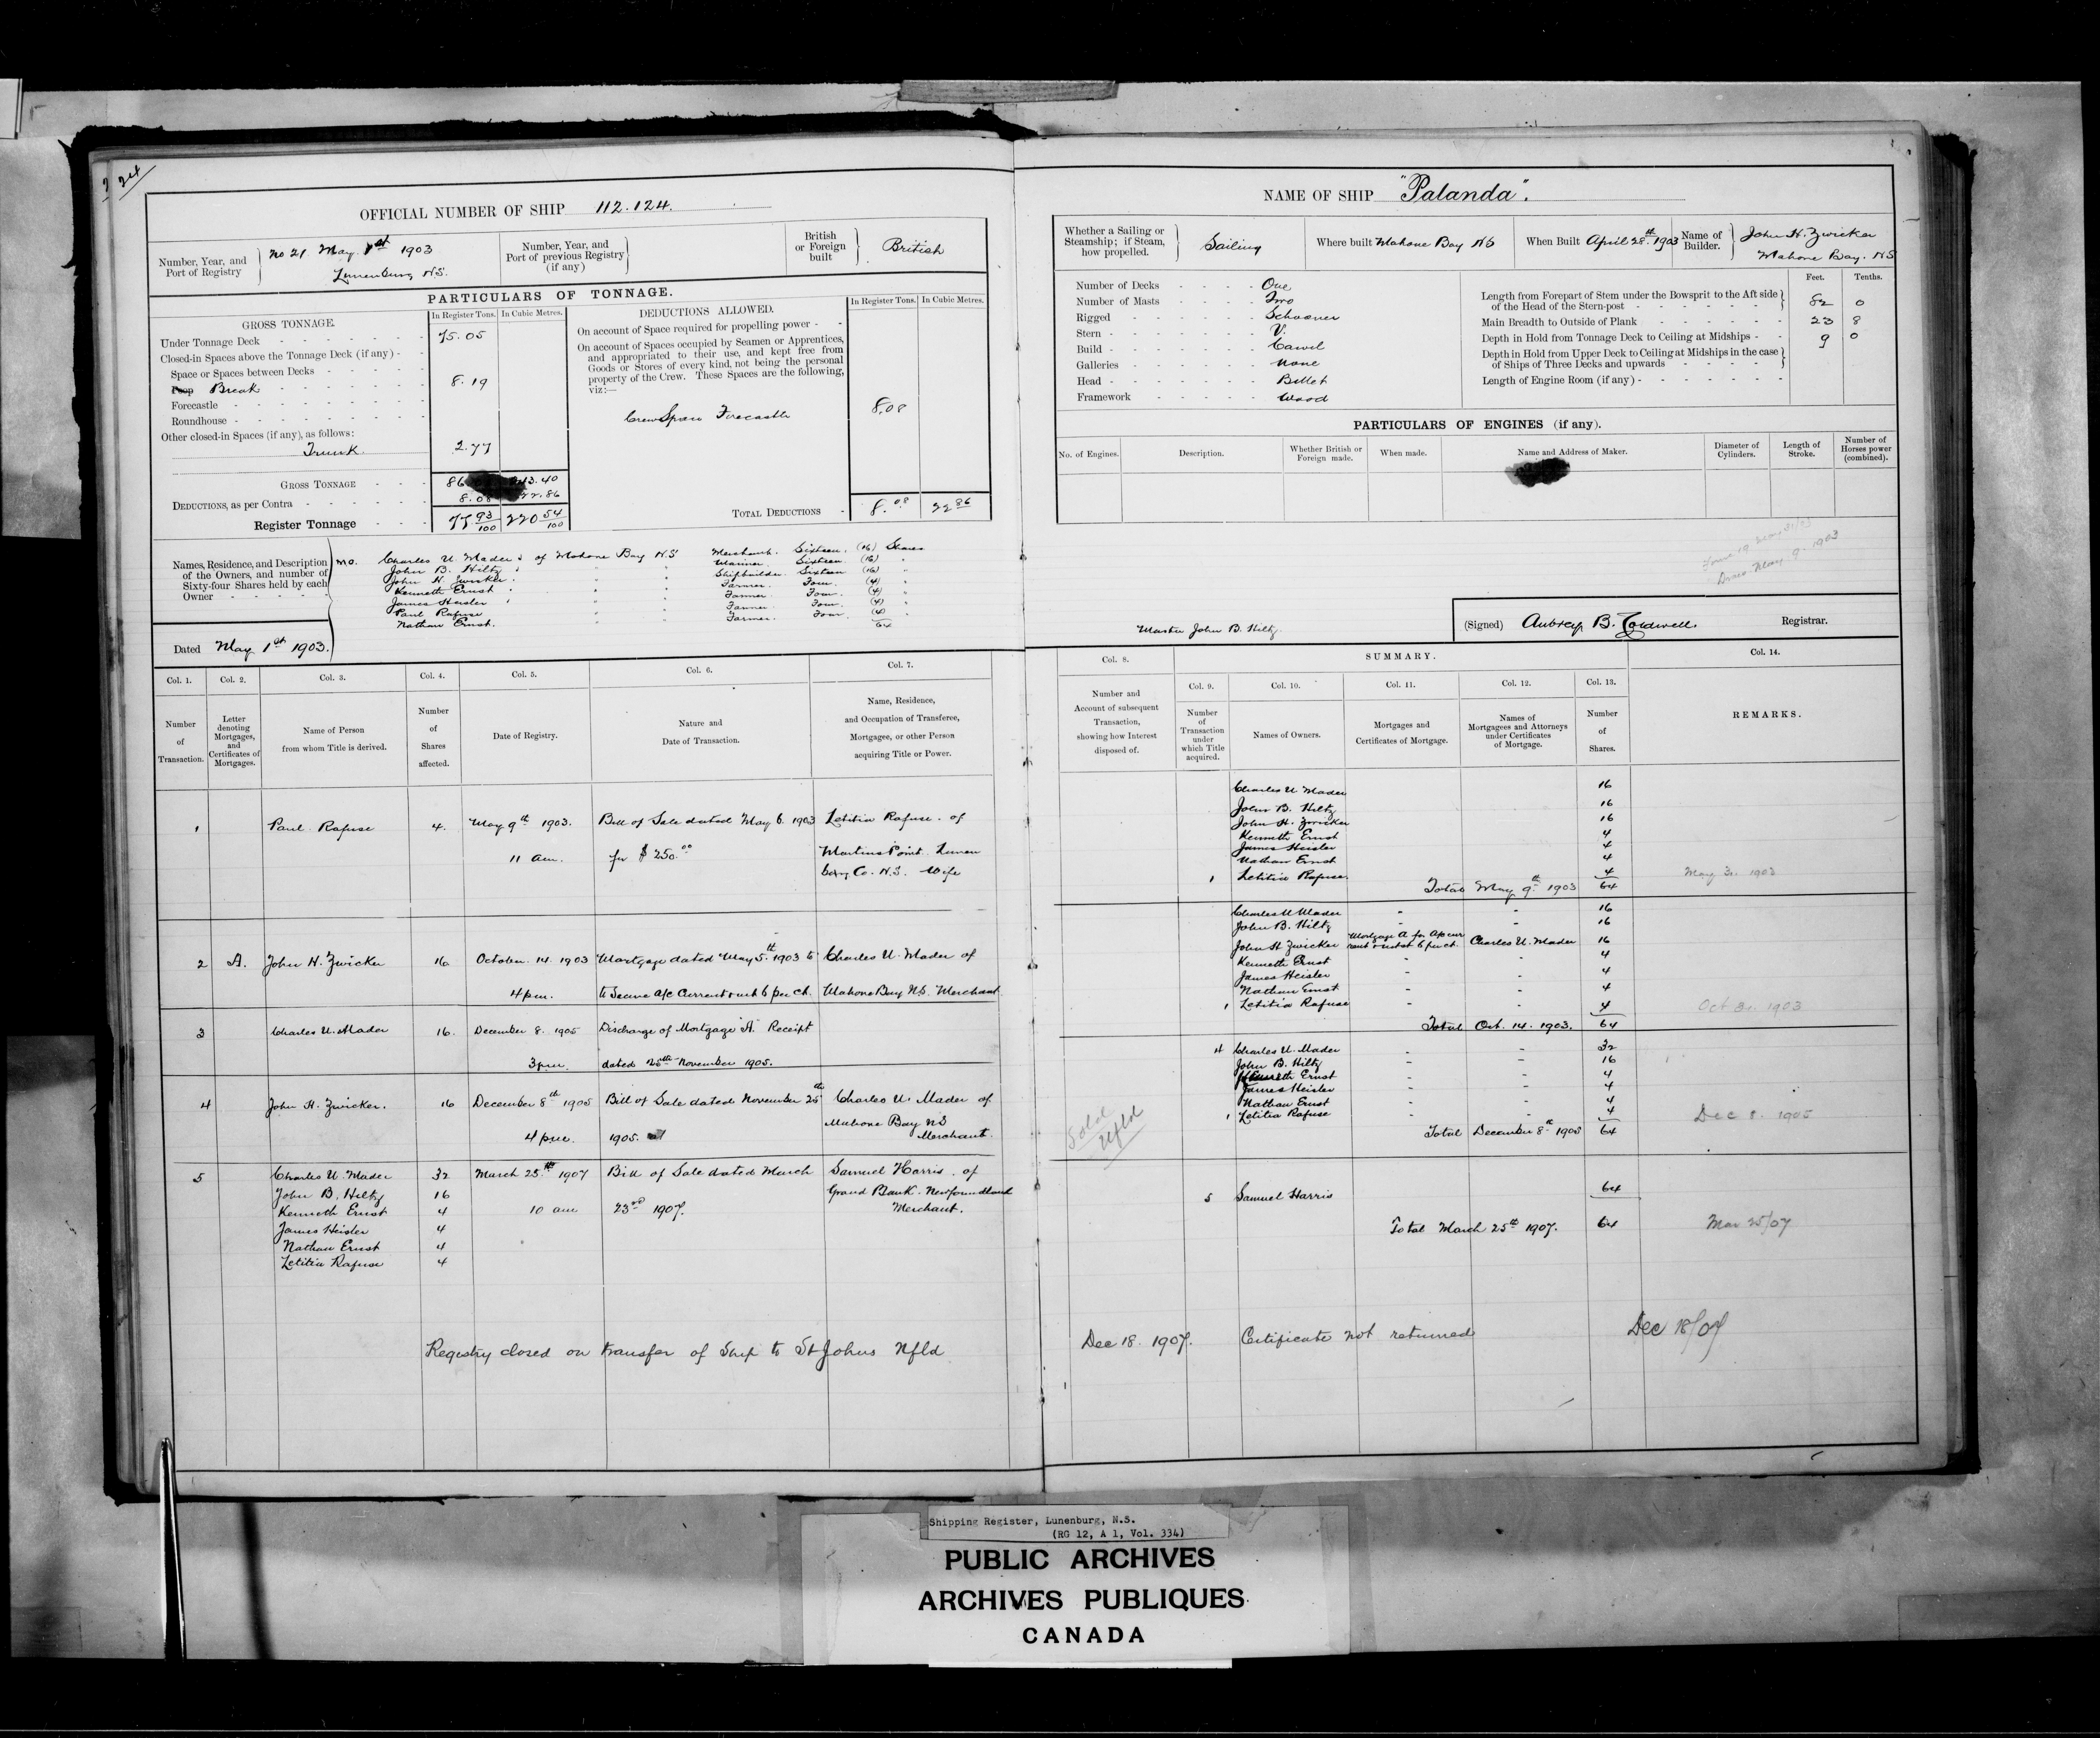 24
OFFICIAL NUMBER OF SHIP 112.124.
Number, Year, and Port of Registry
No 21 May 1st 1903
Lunenburg N.S.
Number, Year, and Port of previous Registry (if any)
British or Foreign built
British
PARTICULARS OF TONNAGE.
In Register Tons. In Cubic Metres.
GROSS TONNAGE.
Under Tonnage Deck 75.05
Closed-in Spaces above the Tonnage Deck (if any)
Space or Spaces between Decks
Poop Break 8.19
Forecastle
Roundhouse
Other closed-in Spaces (if any), as follows:
Trunk 2.77
GROSS TONNAGE 86 43.40
DEDUCTIONS, as per Contra 8.08 22.86
Register Tonnage 77 93/100 220 54/100
DEDUCTIONS ALLOWED.
In Register Tons. In Cubic Metres.
On account of Space required for propelling power
On account of Spaces occupied by Seamen or Apprentices,
and appropriated to their use, and kept free from
Goods or Stores of every kind, not being the personal
property of the Crew. These Spaces are the following,
viz:—
Crew Space Forecastle 8.08
TOTAL DEDUCTIONS 8.08 22 86
Names, Residence, and Description
of the Owners, and number of
Sixty-four Shares held by each
Owner
Charles U. Mader of Mahone Bay N.S. Merchant Sixteen (16) Shares
John B. Hiltz " " Mariner Sixteen (16) "
John H. Zwicker " " Shipbuilder Sixteen (16) "
Kenneth Ernst " " Farmer Four (4) "
James Heisler " " Farmer Four (4) "
Paul Rafuse " " Farmer Four (4) "
Nathan Ernst " " Farmer Four (4) "
64
Dated May 1st 1903.
Col. 1. Col. 2. Col. 3. Col. 4. Col. 5. Col. 6. Col. 7.
Number of Transaction.
Letter denoting Mortgages, and Certificates of Mortgages.
Name of Person from whom Title is derived.
Number of Shares affected.
Date of Registry.
Nature and Date of Transaction.
Name, Residence, and Occupation of Transferee, Mortgagee, or other Person acquiring Title or Power.
1 Paul Rafuse 4. May 9th 1903. Bill of Sale dated May 6. 1903 Letitia Rafuse of
11 am. for $250.00 Martins Point Lunen
burg Co. N.S. Wife
2 A. John H. Zwicker 16 October 14 1903 Mortgage dated May 5th 1903 to Charles U. Mader of
4 pm. to Secure a/c Current & int 6 per ct. Mahone Bay N.S. Merchant
3 Charles U. Mader 16. December 8. 1905 Discharge of Mortgage "A" Receipt
3 pm. dated 25th November 1905.
4 John H. Zwicker. 16 December 8th 1905 Bill of Sale dated November 25th Charles U. Mader of
4 pm. 1905. Mahone Bay NS
Merchant.
5 Charles U. Mader 32 March 25th 1907 Bill of Sale dated March Samuel Harris of
John B. Hiltz 16 Grand Bank Newfoundland
Kenneth Ernst 4 10 am 23rd 1907. Merchant.
James Heisler 4
Nathan Ernst 4
Letitia Rafuse 4
Registry closed on transfer of Ship to St Johns Nfld
NAME OF SHIP "Palanda".
Whether a Sailing or Steamship; if Steam, how propelled.
Sailing
Where built Mahone Bay NS
When Built April 28th 1903
Name of Builder.
John H. Zwicker
Mahone Bay. NS
Number of Decks One
Number of Masts Two
Rigged Schooner
Stern V.
Build Carvel
Galleries None
Head Billet
Framework Wood
Feet. Tenths.
Length from Forepart of Stem under the Bowsprit to the Aft side
of the Head of the Stern-post 82 0
Main Breadth to Outside of Plank 23 8
Depth in Hold from Tonnage Deck to Ceiling at Midships 9 0
Depth in Hold from Upper Deck to Ceiling at Midships in the case
of Ships of Three Decks and upwards
Length of Engine Room (if any)
PARTICULARS OF ENGINES (if any).
No. of Engines. Description. Whether British or Foreign made. When made. Name and Address of Maker. Diameter of Cylinders. Length of Stroke. Number of Horses power (combined).
May 9 1903
Master John B. Hiltz
(Signed) Aubrey B. Caldwell. Registrar.
Col. 8. SUMMARY. Col. 14.
Col. 9. Col. 10. Col. 11. Col. 12. Col. 13.
Number and Account of subsequent Transaction, showing how Interest disposed of.
Number of Transaction under which Title acquired.
Names of Owners.
Mortgages and Certificates of Mortgage.
Names of Mortgagees and Attorneys under Certificates of Mortgage.
Number of Shares.
REMARKS.
Charles U Mader 16
John B. Hiltz 16
John H. Zwicker 16
Kenneth Ernst 4
James Heisler 4
Nathan Ernst 4
1 Letitia Rafuse. 4
Total May 9th 1903 64
May 31 1903
Charles U Mader - - 16
John B. Hiltz - - 16
John H Zwicker Mortgage A for A/c cur
rent & int at 6 per ct. Charles U. Mader 16
Kenneth Ernst - - 4
James Heisler - - 4
Nathan Ernst - - 4
1 Letitia Rafuse - - 4
Total Oct. 14. 1903. 64
Oct 31 1903
4 Charles U. Mader - - 32
John B. Hiltz - - 16
Kenneth Ernst - - 4
James Heisler - - 4
Nathan Ernst - - 4
1 Letitia Rafuse - - 4
Total December 8th 1905 64
Dec 8. 1905
Sold
Nfld
5 Samuel Harris 64
Total March 25th 1907. 64
Mar 25/07
Dec 18. 1907. Certificate not returned Dec 18/07
Shipping Register, Lunenburg, N.S.
(RG 12, A 1, Vol. 334)
PUBLIC ARCHIVES
ARCHIVES PUBLIQUES
CANADA